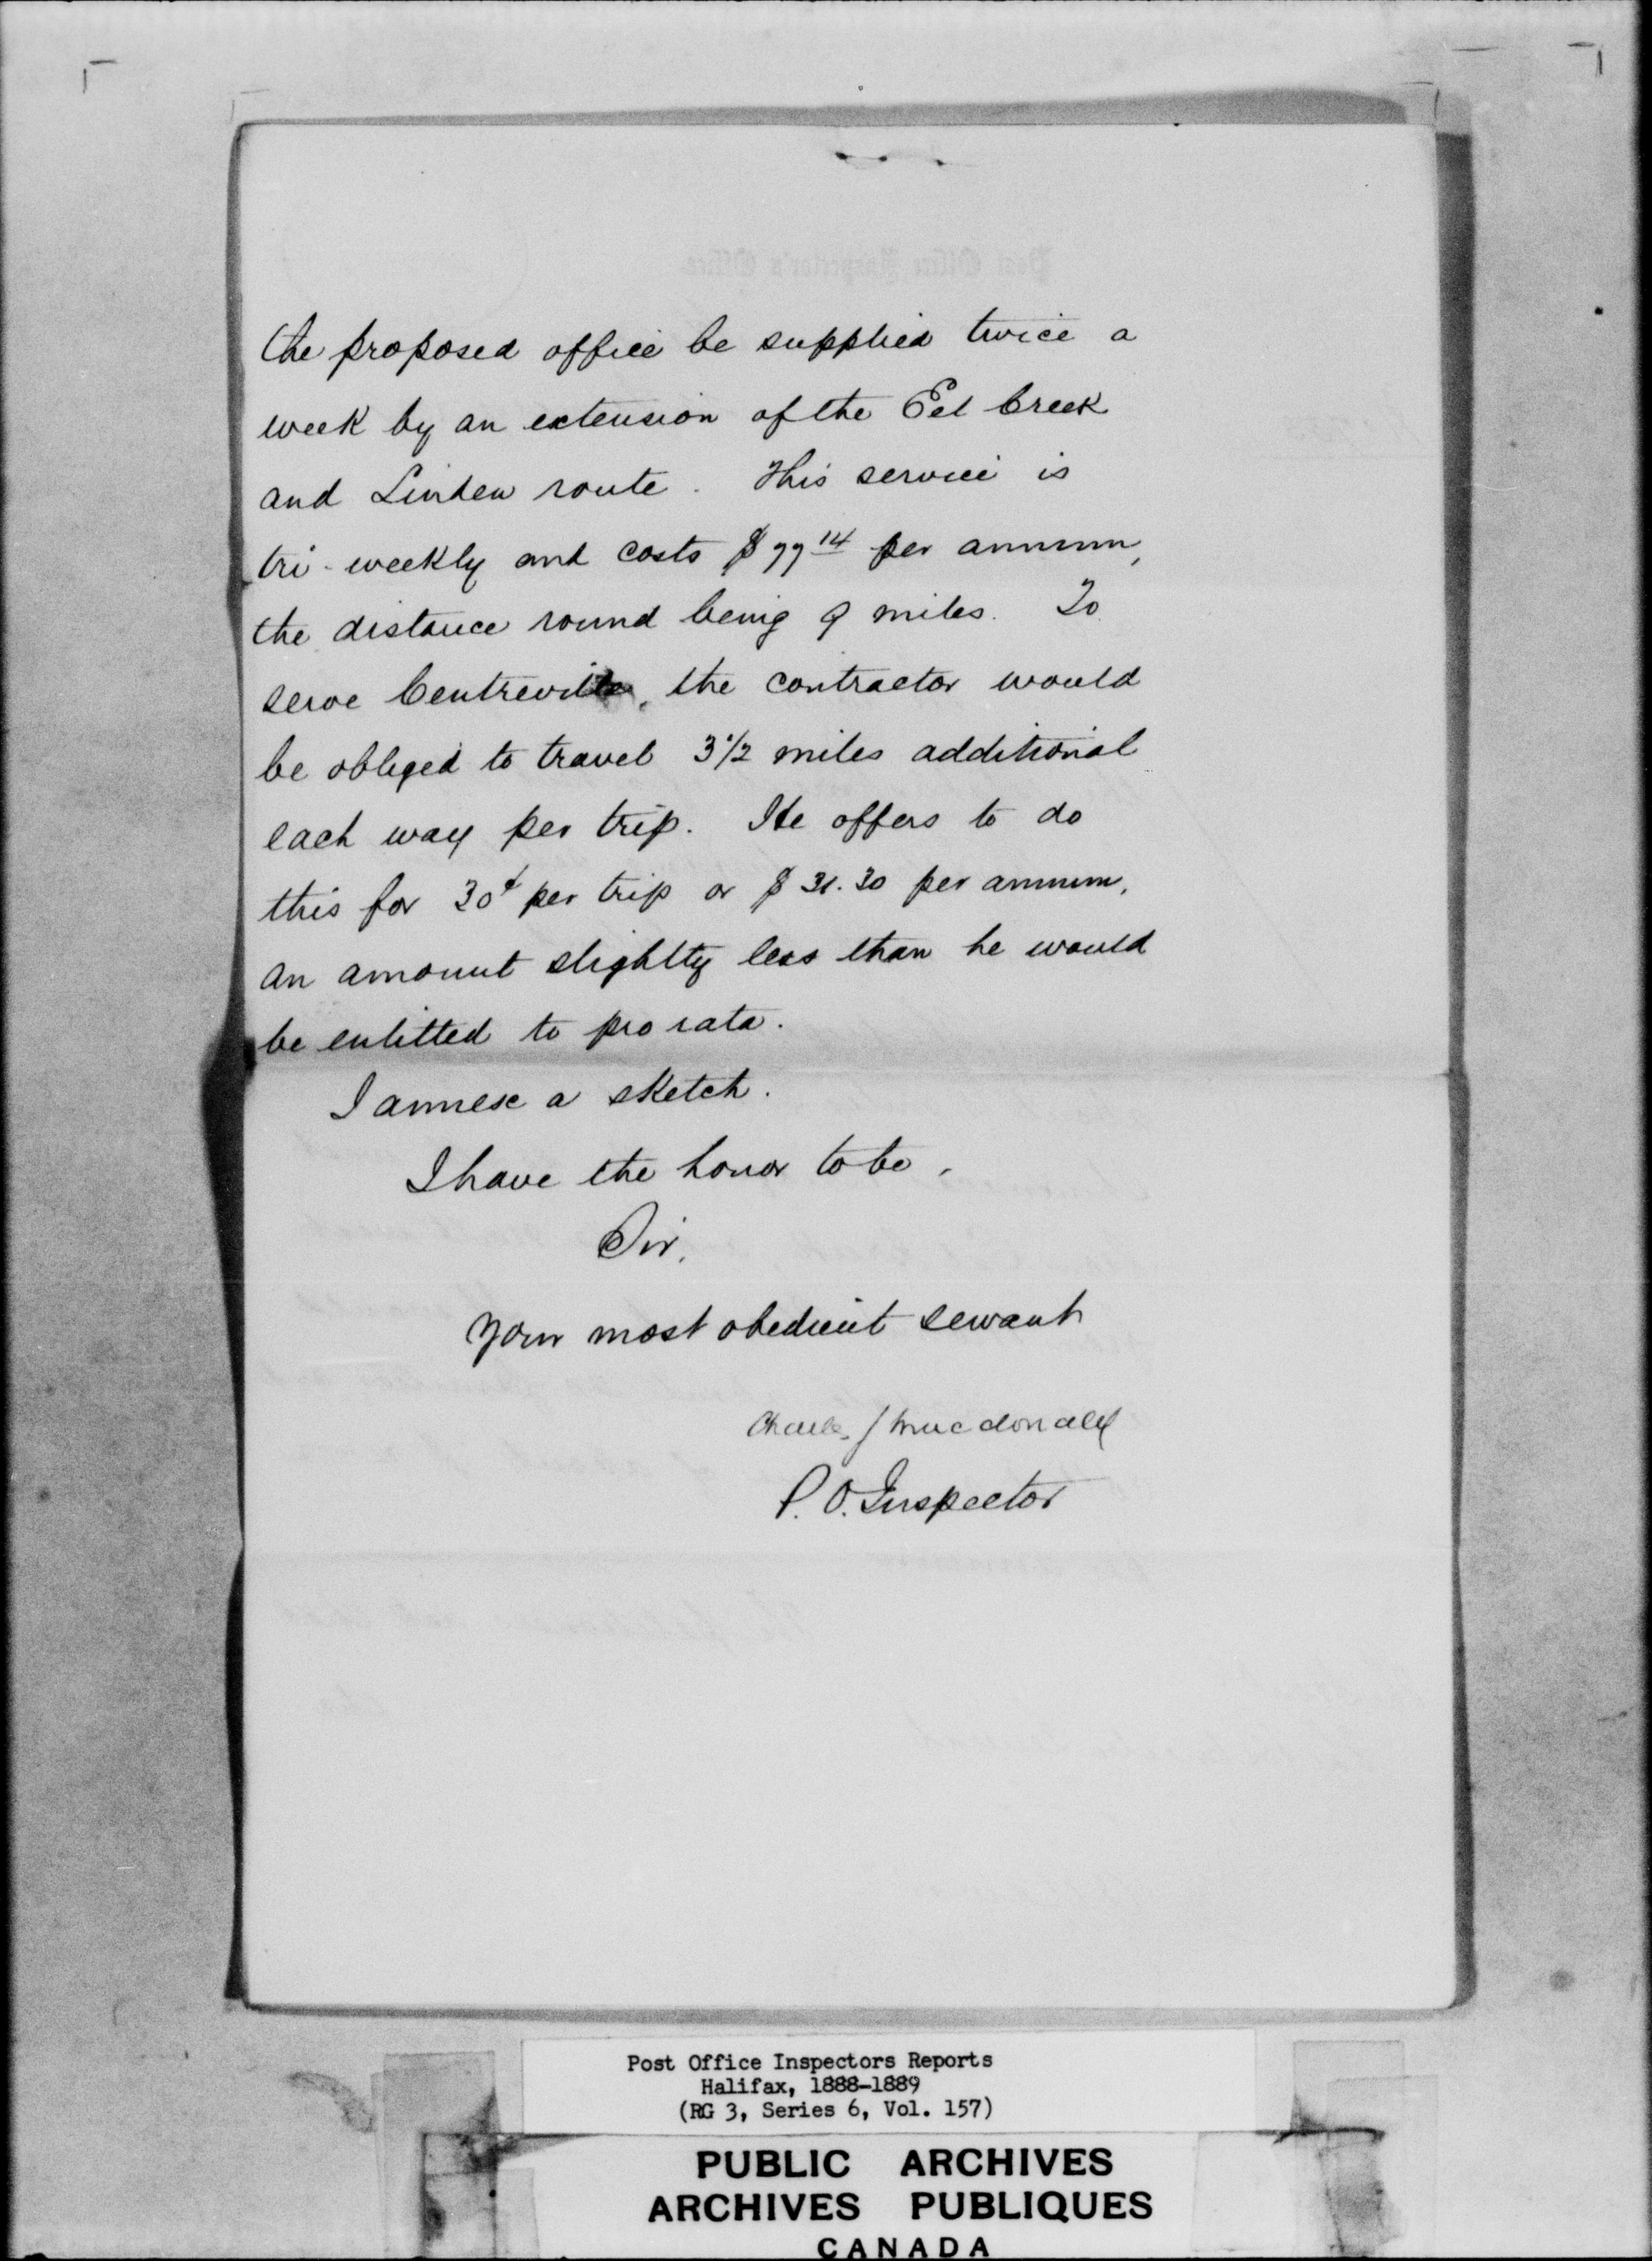 the proposed office be supplied twice a
week by an extension of the Eel Creek
and Linden route. This service is
tri-weekly and costs $77 14 per annum,
the distance round being 9 miles. To
serve Centreville, the contractor would
be obliged to travel 3 1/2 miles additional
each way per trip. He offers to do
this for 30¢ per trip or $31.30 per annum,
an amount slightly less than he would
be entitled to pro rata.
I annex a sketch.
I have the honor to be,
Sir,
Your most obedient servant
Charles J Macdonald
P. O. Inspector
Post Office Inspectors Reports
Halifax, 1888-1889
(RG 3, Series 6, Vol. 157)
PUBLIC ARCHIVES
ARCHIVES PUBLIQUES
CANADA